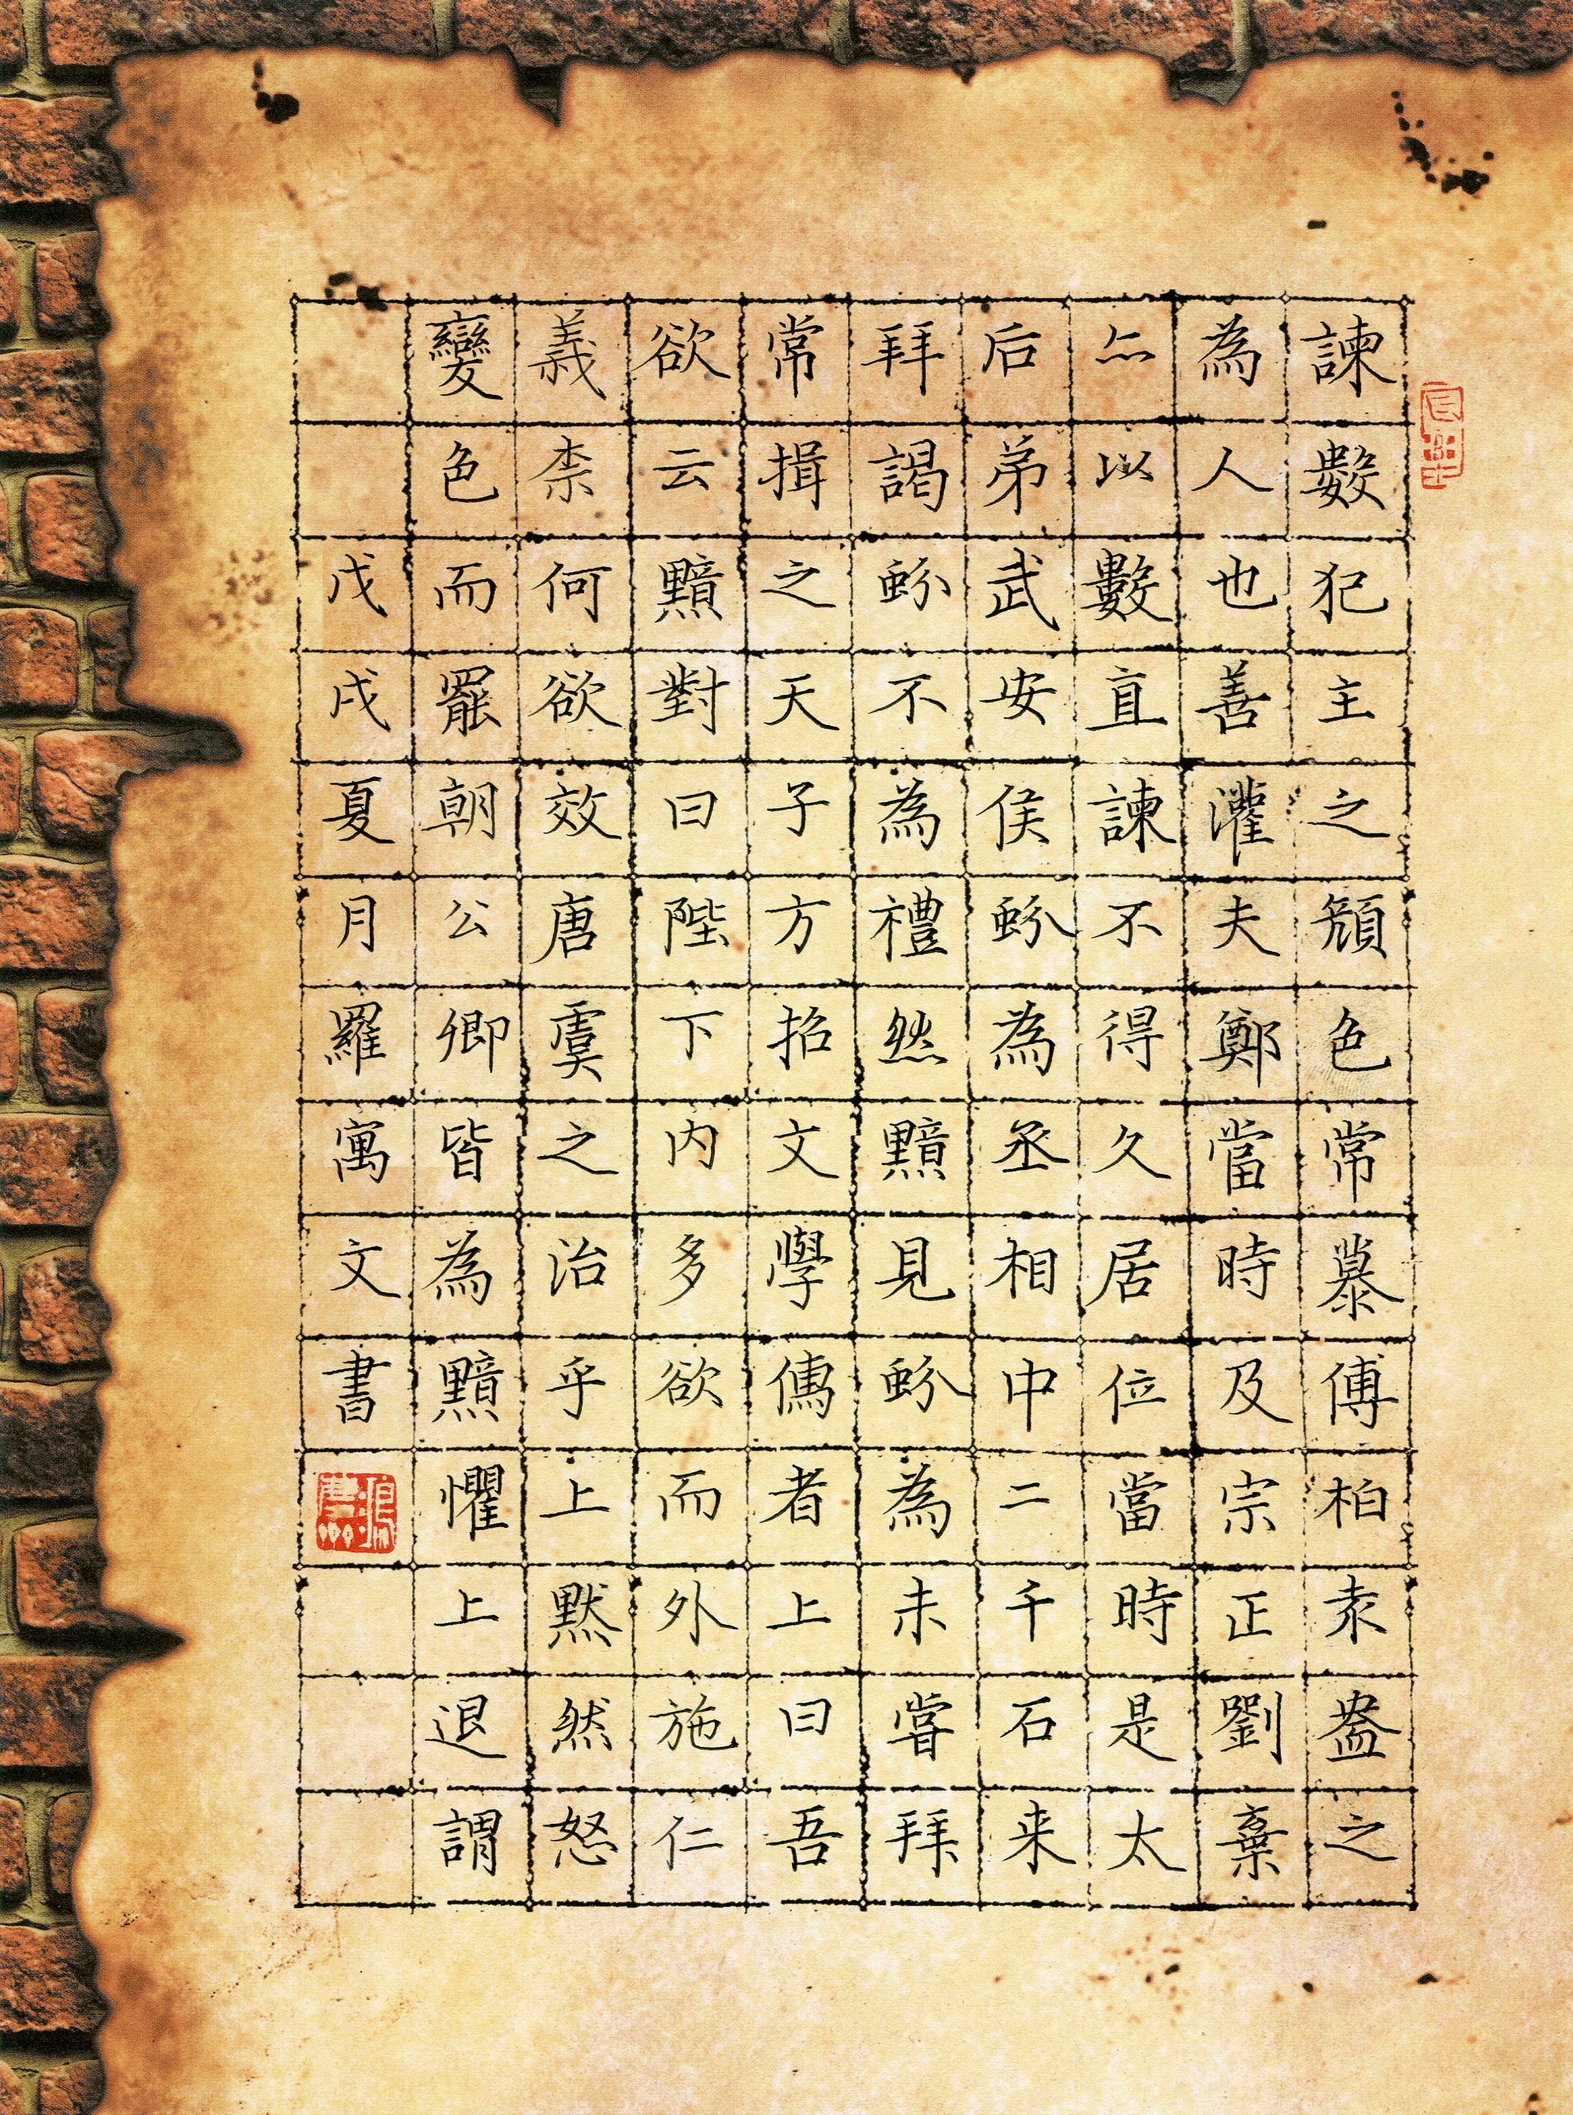 諫數犯主之頟色常慕傅柏袁盎之
為人也善灌夫鄭當時及宗正劉棄
亦以數直諫不得久居位當時是太
后弟武安侯蚡為丞相中二千石来
拜謁蚡不為禮然黯見蚡為未嘗拜
常揖之天子方招文學儁者上曰吾
欲云黯對曰陛下内多欲而外施仁
義柰何欲效唐虞之治乎上黙然怒
變色而罷朝公卿皆為黯懼上退謂
戊戌夏月羅寓文書